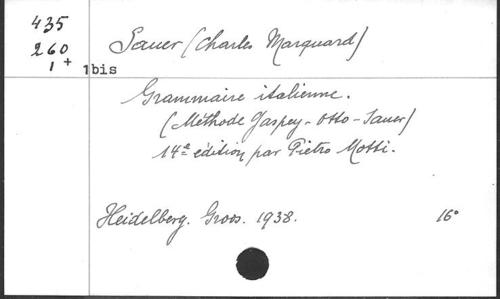 435
260
1 + 1bis
Sauer (Charles Marquard)
Grammaire italienne.
(Méthode Gaspey-Otto-Sauer)
14e édition par Pietro Motti.
Heidelberg. Groos. 1938. 16°